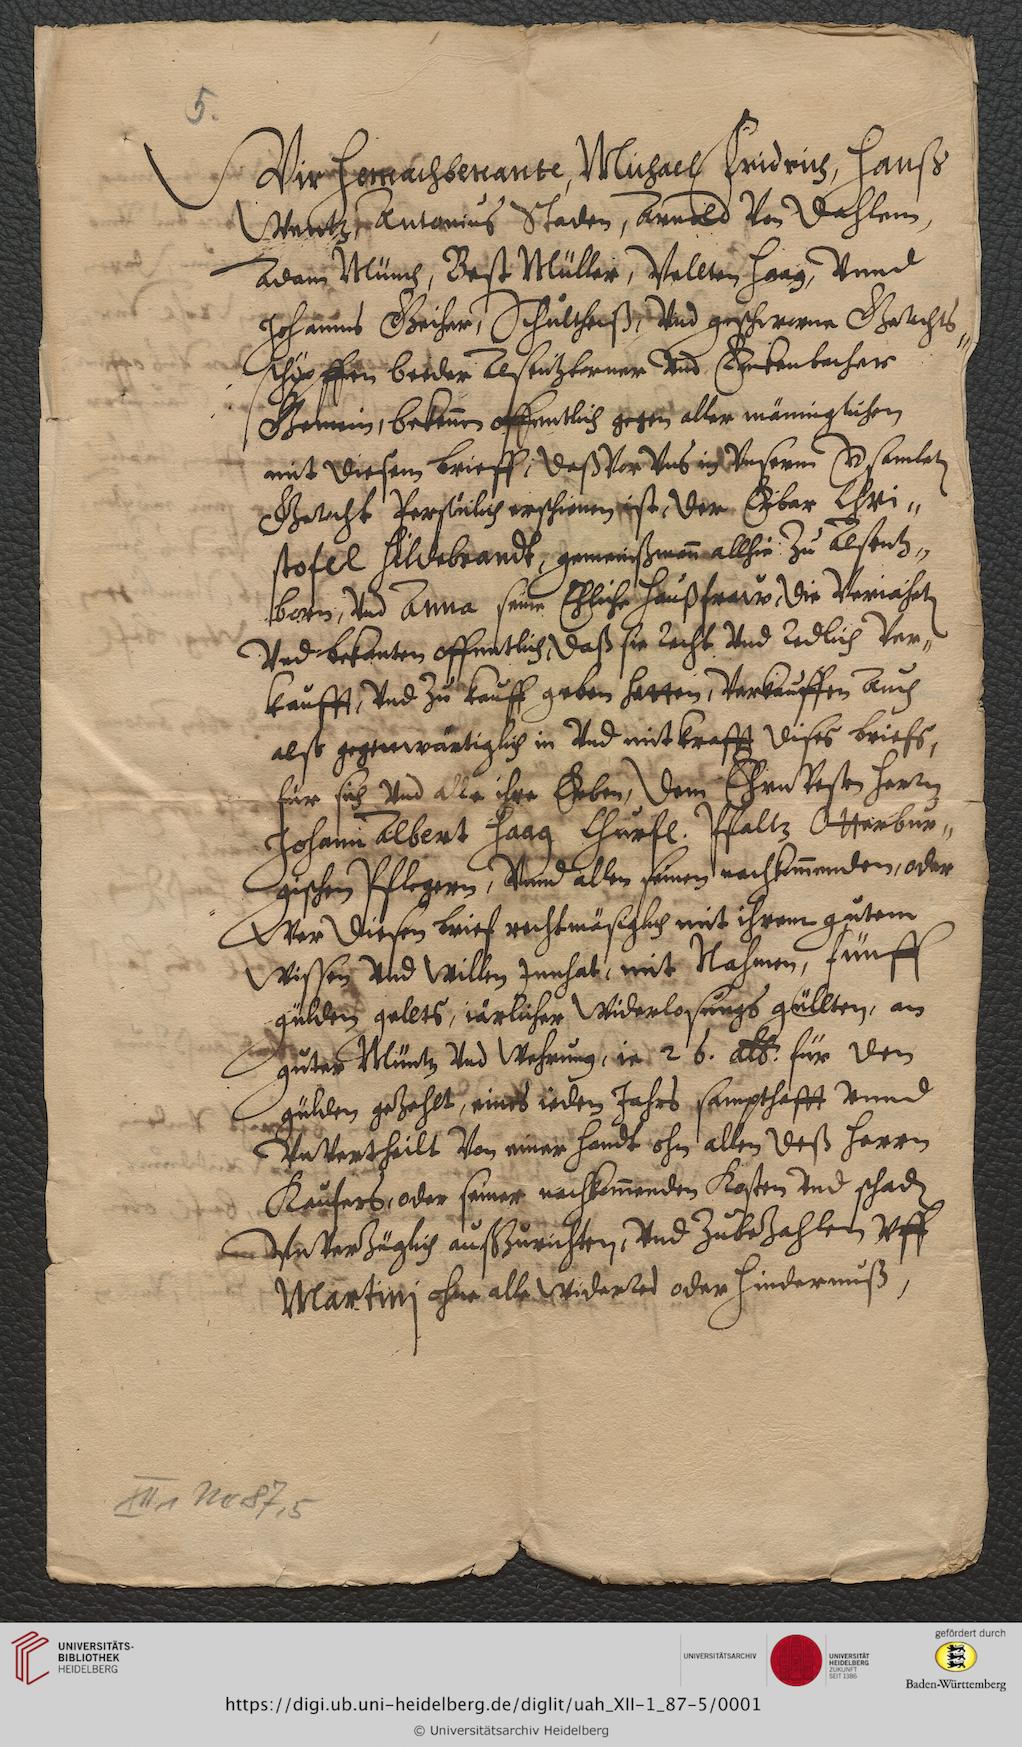 5.
Wir Hernachbenante, Michael Fridrich, Hanß
Wentz, Antonius Staden, Arnold Von Dahlem,
Adam Münch, Best Müller, Vellten Haag, Vnnd
Johannes Geiher, Schultheiß, Vnd geschworne Gerichts„
schöpffen beeder Alsentzborner Vnd Enkenbacher
Gemein, bekennen offentlich gegen aller männiglichen
mit diesem brieff, daß Vor Vns in Vnserm Versamleten
Gericht Persönlich erschienen ist, der Erbar Chri„
stofel Hildebrandt, gemeinßmann allhie zu Alsentz„
born, Vnd Anna seine Ehliche Haußfraw, die Veriaheten
Vnd bekanten offentlich, daß sie recht Vnd redlich Ver„
kaufft, Vnd zu kauff geben hetten, Verkauffen Auch
also gegenwärtiglich in Vnd mit krafft dises briefs,
für sich Vnd alle ihre Erben, dem Ehrnvesten Herrn
Johann Albert Haag Churfl. Pfaltz Otterbur„
gischen Pflegern, Vnnd allen seinen nachkommenden, oder
Wer diesen brief rechtmäsiglich mit ihrem gutem
Wissen Vnd Willen Innhat, mit Nahmen, fünff
gülden gelts, iärlicher Widerlosungs güllten, an
guter Müntz Vnd Wehrung, ie 26. alb. für den
gülden gezehlt, eines ieden Jahrs sampthafft vnnd
Vnvertheilt Von einer handt ohn allen deß Herrn
Keufers, oder seiner nachkommenden Kosten Vnd schaden
Vnverzüglich außzurichten, Vnd zubezahlen Vff
Martinj ohne alle Widerred oder Hindernuß,
XII,1 No 87,5
UNIVERSITÄTS-
BIBLIOTHEK
HEIDELBERG
UNIVERSITÄTSARCHIV
UNIVERSITÄT
HEIDELBERG
ZUKUNFT
SEIT 1386
gefördert durch
Baden-Württemberg
https://digi.ub.uni-heidelberg.de/diglit/uah_XII-1_87-5/0001
© Universitätsarchiv Heidelberg